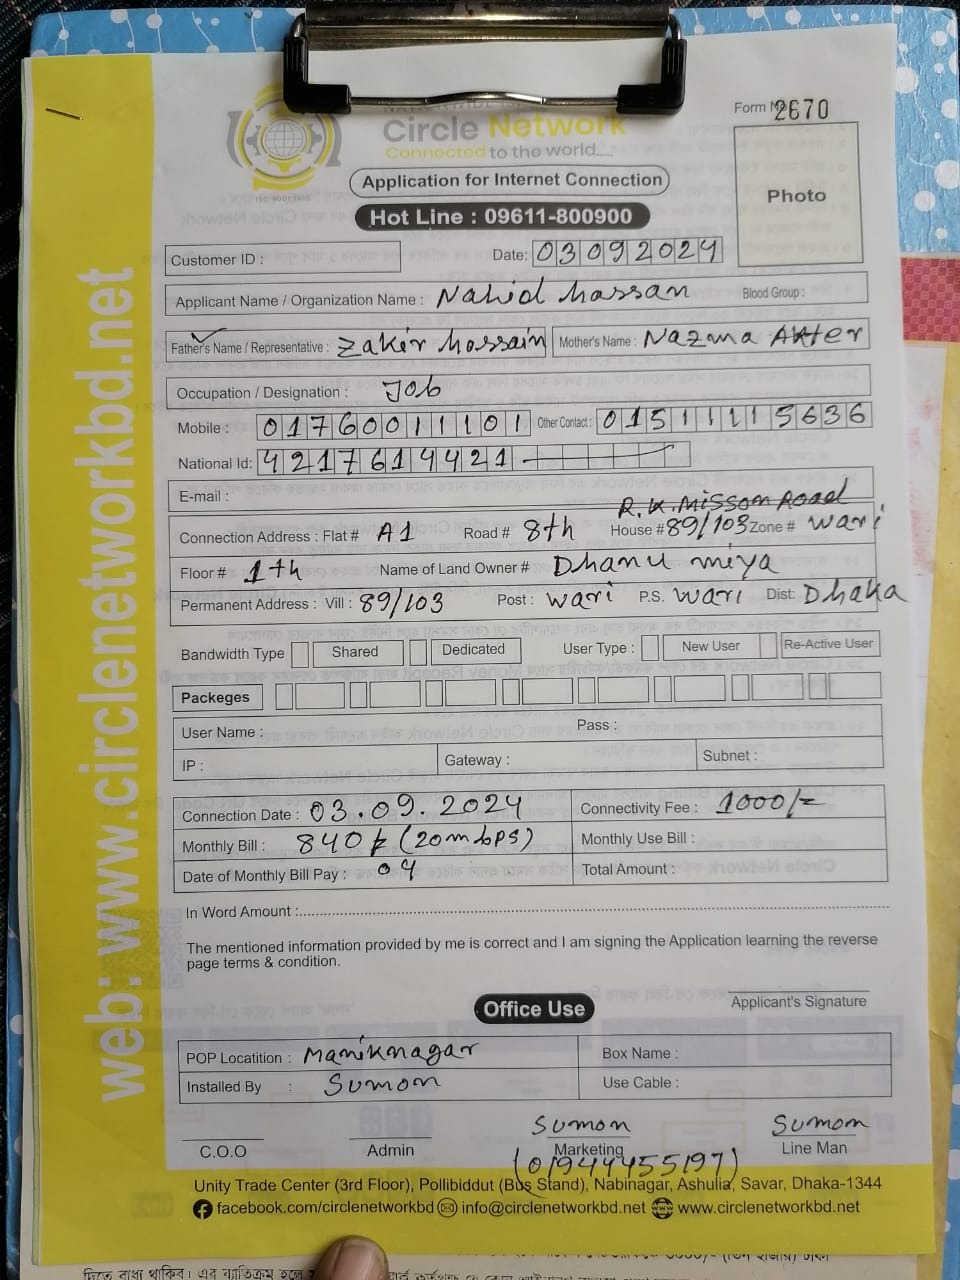 Form No 2670
Circle Network
Connected to the world.....
ISO 9001:2015
Application for Internet Connection
Photo
Hot Line : 09611-800900
Customer ID :
Date: 03092024
Applicant Name / Organization Name : Nahid Hassan Blood Group :
Father's Name / Representative : Zakir Hossain Mother's Name : Nazma Akter
Occupation / Designation : Job
Mobile : 01760011101 Other Contact : 01511115636
National Id: 4217614421
E-mail :
R.K. Missom Road
Connection Address : Flat # A1 Road # 8th House # 89/103 Zone # Wari
Floor # 1th Name of Land Owner # Dhanu miya
Permanent Address : Vill : 89/103 Post : Wari P.S. Wari Dist: Dhaka
Bandwidth Type Shared Dedicated User Type : New User Re-Active User
Packeges
User Name : Pass :
IP : Gateway : Subnet :
Connection Date : 03.09.2024 Connectivity Fee : 1000/=
Monthly Bill : 840 (20mbps) Monthly Use Bill :
Date of Monthly Bill Pay : 04 Total Amount :
In Word Amount :
The mentioned information provided by me is correct and I am signing the Application learning the reverse
page terms & condition.
Applicant's Signature
Office Use
POP Locatition : Maniknagar Box Name :
Installed By : Sumon Use Cable :
Sumon Sumon
C.O.O Admin Marketing Line Man
(01944455197)
Unity Trade Center (3rd Floor), Pollibiddut (Bus Stand), Nabinagar, Ashulia, Savar, Dhaka-1344
facebook.com/circlenetworkbd info@circlenetworkbd.net www.circlenetworkbd.net
web: www.circlenetworkbd.net
দিতে বাধ্য থাকিব। এর ব্যতিক্রম হলে